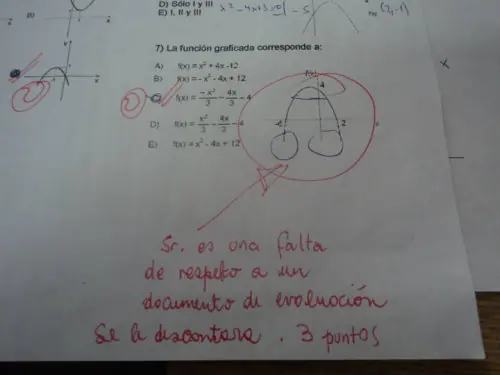 D) Sólo I y III
E) I, II y III
III)
7) La función graficada corresponde a:
A) f(x) = x² + 4x -12
B) f(x) = - x² - 4x + 12
f(x) = -x²/3 - 4x/3 - 4
D) f(x) = x²/3 - 4x/3 - 4
E) f(x) = x² - 4x + 12
f(x)
4
2
x
Sr. es una falta
de respeto a un
documento de evaluación
Se le descontara . 3 puntos